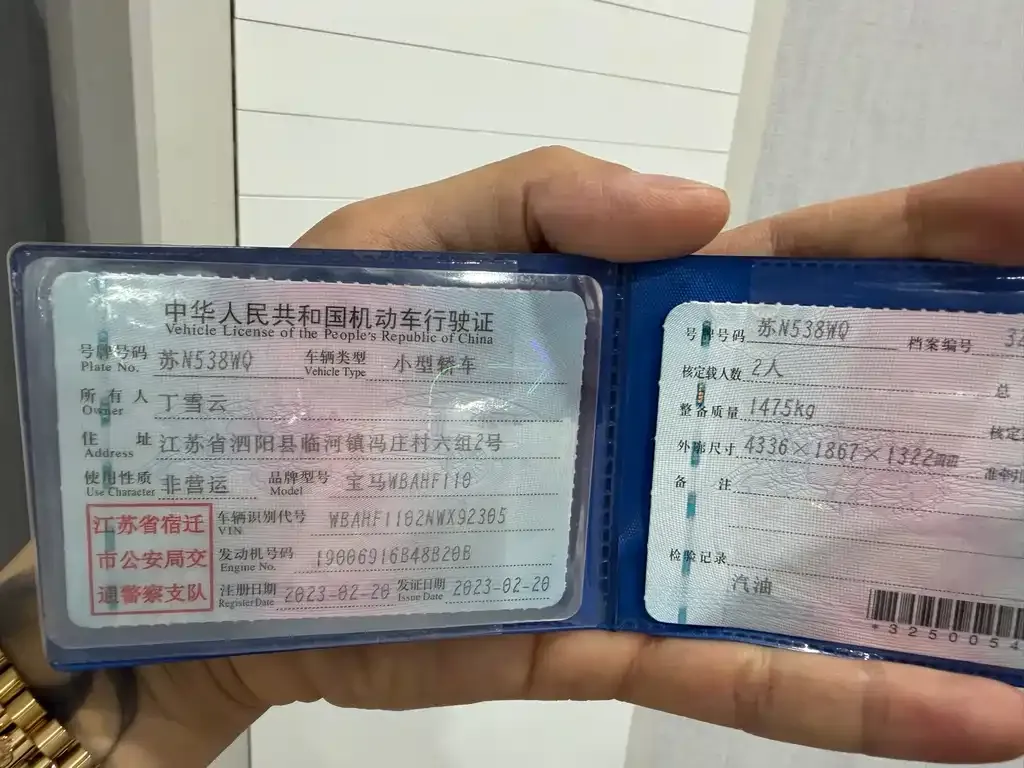 中华人民共和国机动车行驶证
Vehicle License of the People's Republic of China
号牌号码 苏N538WQ 车辆类型 小型轿车
Plate No. Vehicle Type
所有人 丁雪云
Owner
住址 江苏省泗阳县临河镇冯庄村六组2号
Address
使用性质 非营运 品牌型号 宝马WBAHF110
Use Character Model
江苏省宿迁
市公安局交
通警察支队
车辆识别代号 WBAHF1102NWX92305
VIN
发动机号码 19006916B48B20B
Engine No.
注册日期 2023-02-20 发证日期 2023-02-20
Register Date Issue Date
号牌号码 苏N538WQ 档案编号 32
核定载人数 2人 总
整备质量 1475kg 核定
外廓尺寸 4336×1867×1322mm 准牵引
备注
检验记录
汽油
*3250054